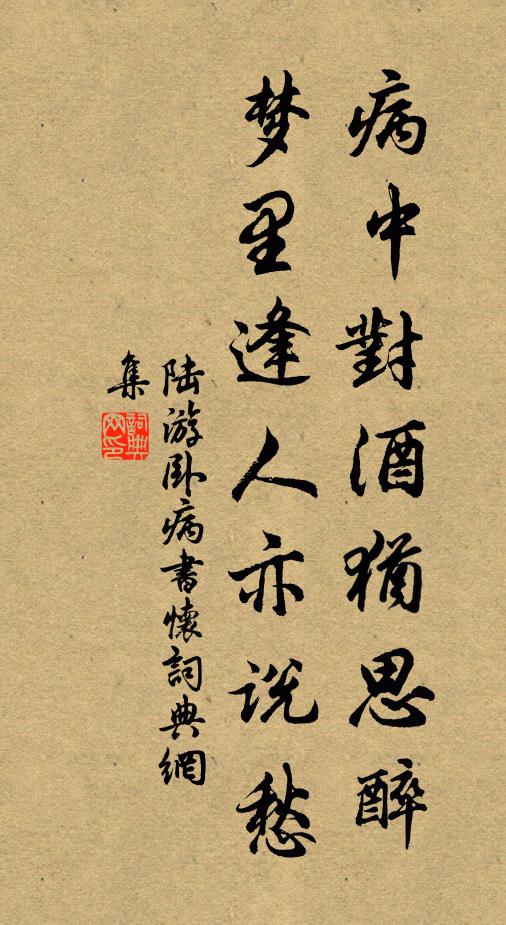 病中對酒猶思醉
梦里逢人亦说愁
陆游卧病書懷詞典網
集
詞典
网印